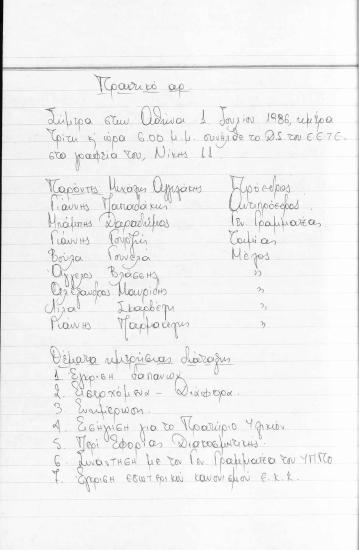 Πρακτικό αρ.
Σήμερα στην Αθήνα 1 Ιουλίου 1986, ημέρα
Τρίτη κ' ώρα 6.00 μ.μ. συνήλθε το Δ.Σ του Ε.Ε.Τ.Ε.
στα γραφεία του, Νίκης 11
Παρόντες Μιχάλης Πρόεδρος
Γιάννης Παπαδάκης Αντιπρόεδρος
Μπάμπης Γεν. Γραμματέας
Γιάννης Ταμίας
Βούλα Μέλος
Άγγελος Βλάσσης "
Αλέξανδρος Μαυρίδης "
Λίλα "
Γιάννης "
Θέματα ημερήσιας διάταξης
1. Έγκριση δαπανών
2. Εισερχόμενα - Διάφορα.
3. Ενημέρωση.
4. Εισήγηση για το Πρατήριο Υλικών
5. Περί Εφορίας Διατσέντης.
6. Συνάντηση με τον Γεν. Γραμματέα του ΥΠΠΟ
7. Έγκριση εσωτερικού κανονισμού Ε.Κ.Κ.